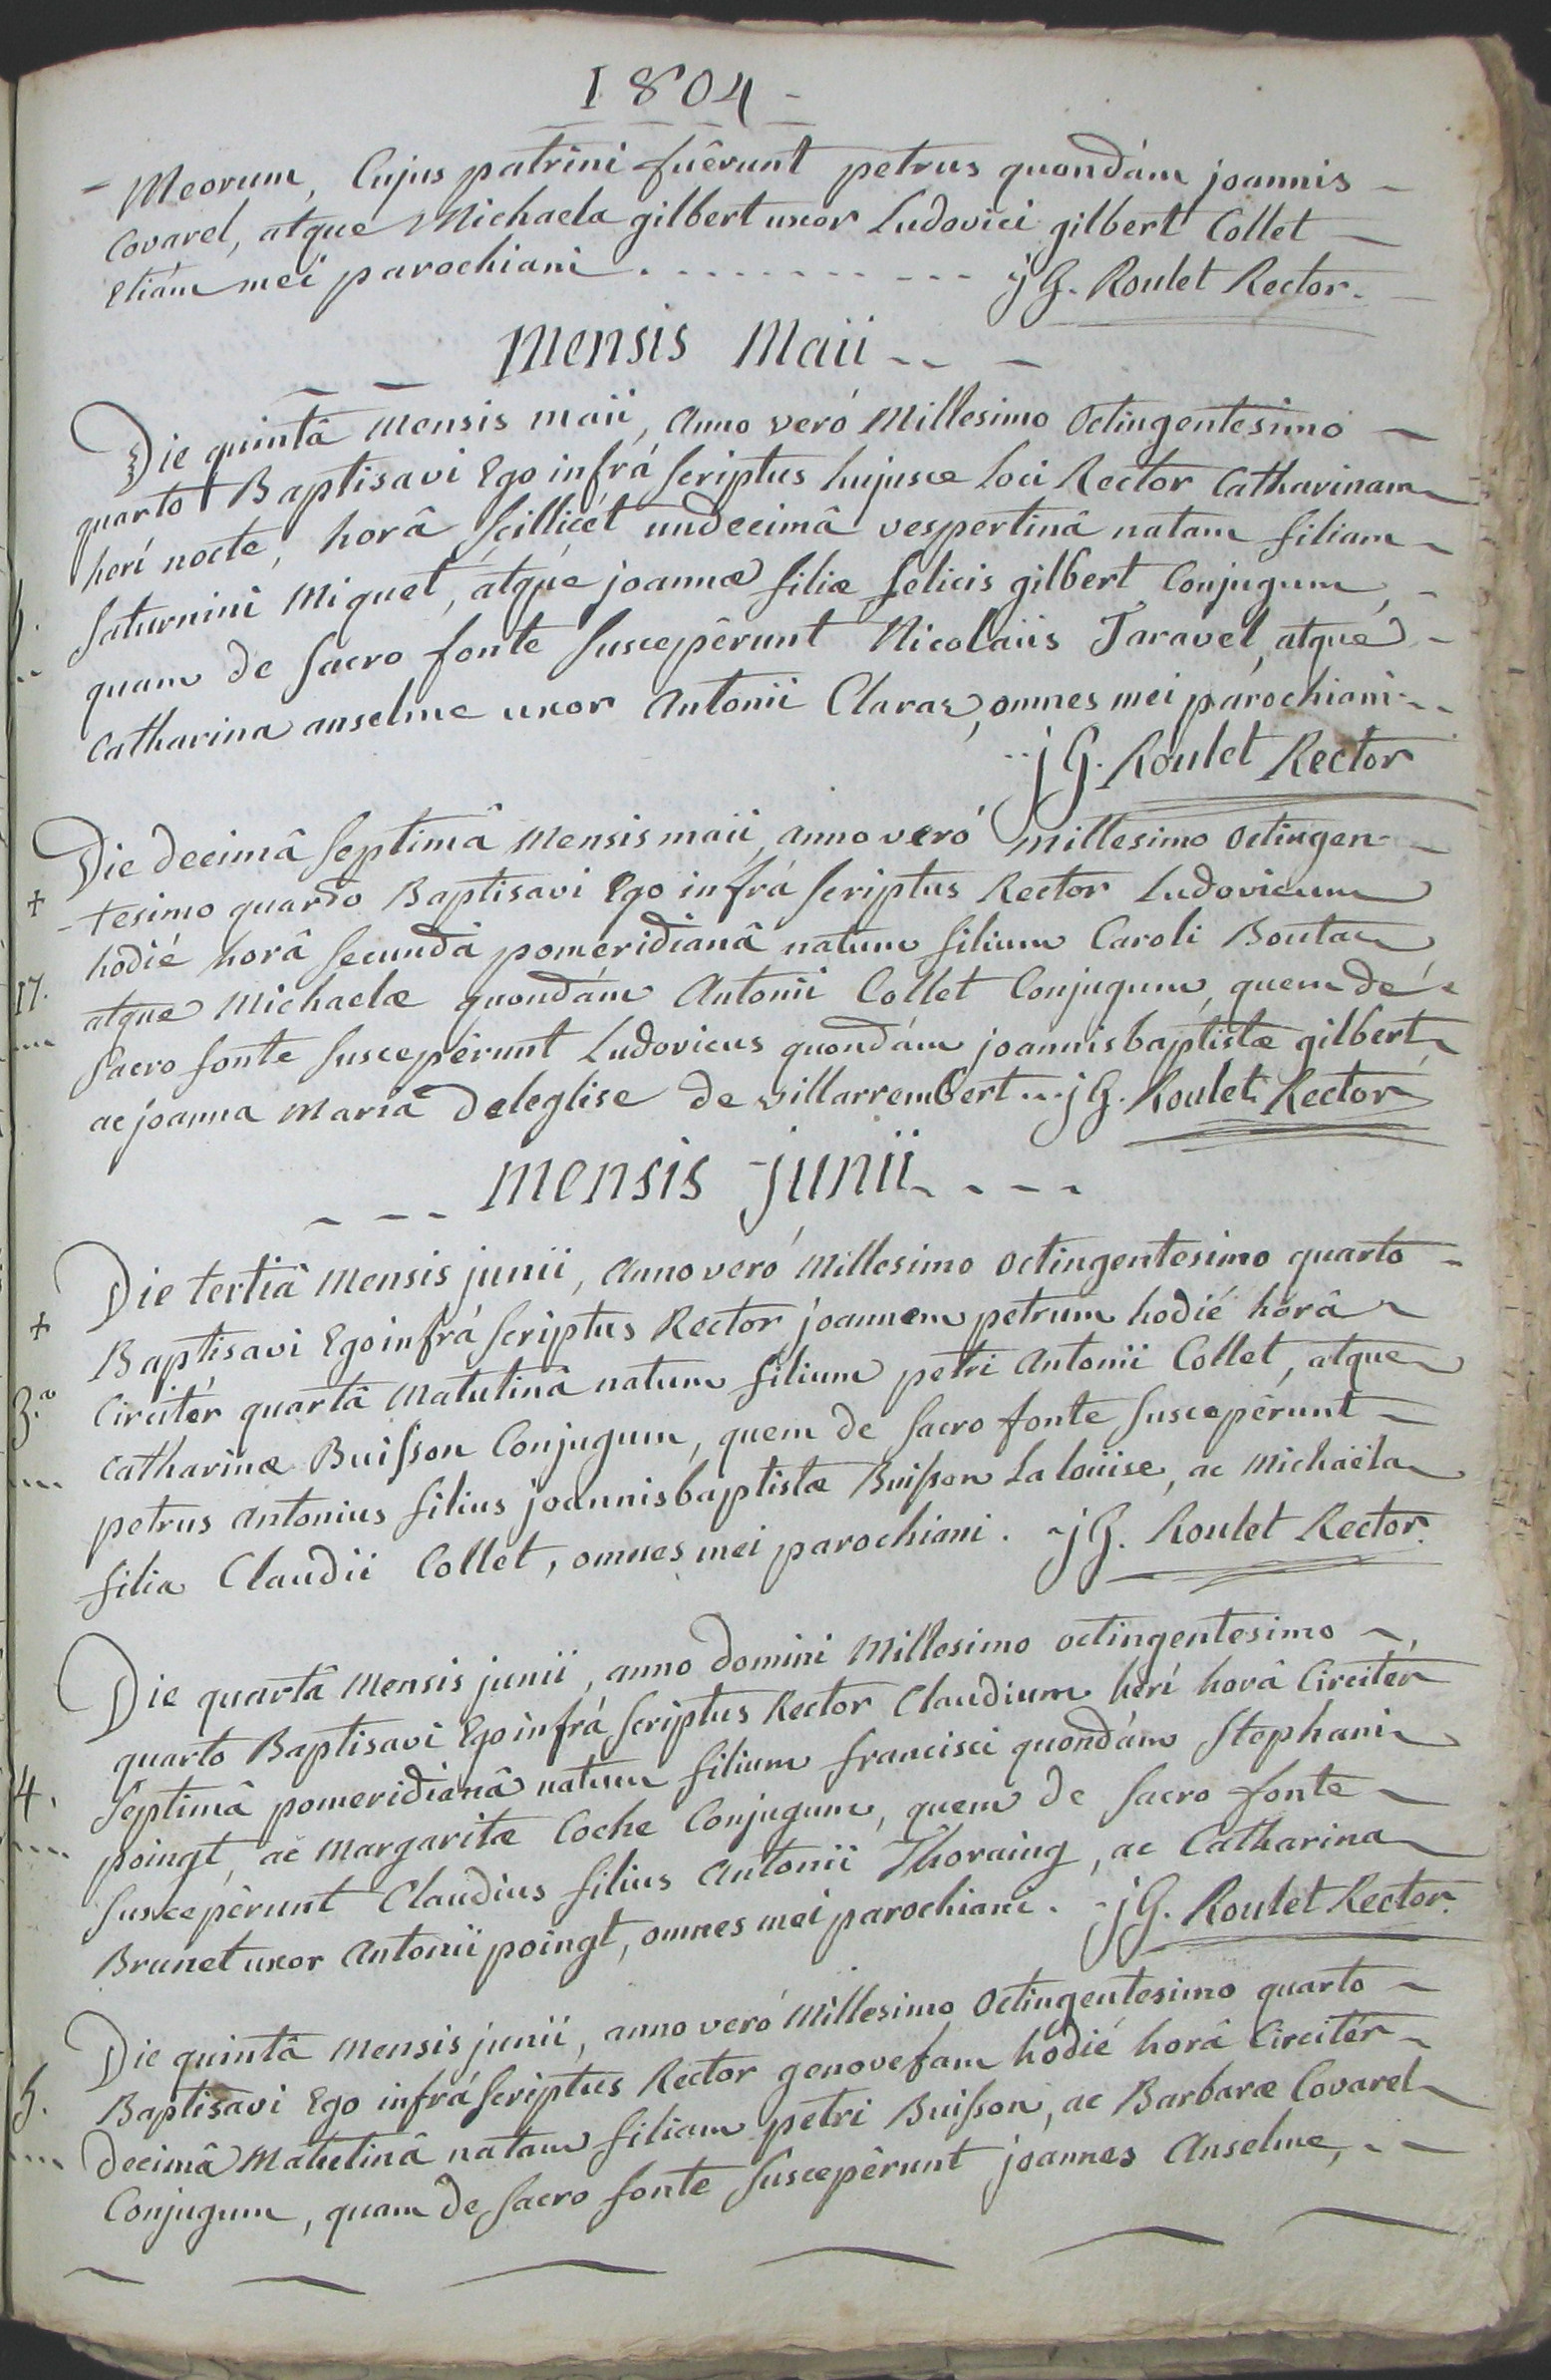 1804 -
- Meorum, Cujus patrini fuêrunt petrus quondám joannis -
Covarel, atque Michaela gilbert uxor Ludovici gilbert Collet -
Etiám mei parochiani . - - - - - - - - - - jG. Roulet Rector. -
Mensis Maii - - -
Die quintâ Mensis maii, Anno veró Millesimo Octingentesimo -
quarto Baptisavi Ego infrá scriptus hujusce loci Rector Catharinam
herí nocte, horâ scillicét undecimâ vespertinâ natam filiam -
5. Saturnini Miquet, atque joannæ filiæ felicis gilbert Conjugum, -
quam de sacro fonte suscepêrunt Nicolaüs Taravel, atqué -
Catharina anselme uxor Antonii Claraz, omnes mei parochiani - -
jG. Roulet Rector
Die decimâ septimâ Mensis maii, anno veró millesimo octingen -
+ - tesimo quarto Baptisavi Ego infrá scriptus Rector Ludovicum
hodié horâ secundâ pomeridianâ natum filium Caroli Boutaz
17. atque Michaelæ quondám Antonii Collet Conjugum, quem de -
sacro fonte suscepêrunt Ludovicus quondám joannisbaptistæ gilbert
ac joanna Maria deleglise de villarrembert ... jG. Roulet Rector
- - - Mensis junii - - - -
Die tertiâ Mensis junii, Anno veró Millesimo octingentesimo quarto -
+ Baptisavi Ego infrá scriptus Rector joannem petrum hodié horâ -
3.a Circitér quartâ Matutinâ natum filium petri Antonii Collet, atque
Catharinæ Buisson Conjugum, quem de sacro fonte suscepêrunt -
petrus Antonius filius joannisbaptistæ Buisson La loüise, ac Michaëla
filia Claudii Collet, omnes mei parochiani. - jG. Roulet Rector.
Die quartâ Mensis junii, anno domini Millesimo octingentesimo -
quarto Baptisavi Ego infrá scriptus Rector Claudium herí horâ Circitér
4. septimâ pomeridianâ natum filium francisci quondám Stephani
poingt, ac Margaritæ Coche Conjugum, quem de sacro fonte -
suscepêrunt Claudius filius Antonii Thoraing, ac Catharina
Brunet uxor Antonii poingt, omnes mei parochiani. - jG. Roulet Rector.
Die quintâ Mensis junii, anno veró Millesimo Octingentesimo quarto -
5. Baptisavi Ego infrá scriptus Rector genovefam hodié horâ Circitér -
decimâ Matutinâ natam filiam petri Buisson, ac Barbaræ Covarel
Conjugum, quam de sacro fonte suscepêrunt joannes Anselme, - -